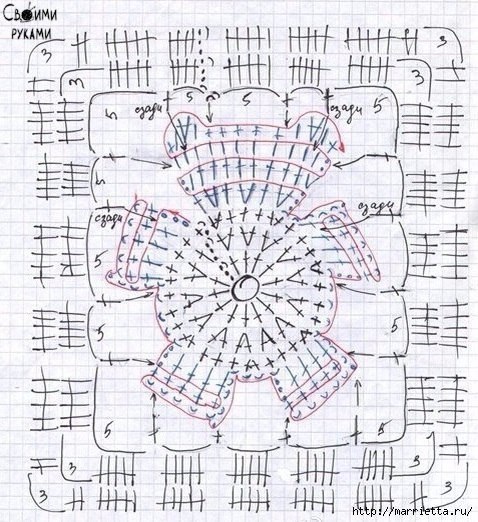 Своими
руками
3 3
3 3
5 5 5 5
сзади сзади
5
сзади сзади
5 5
5 5
5 5
3 3
3 3
http://marrietta.ru/